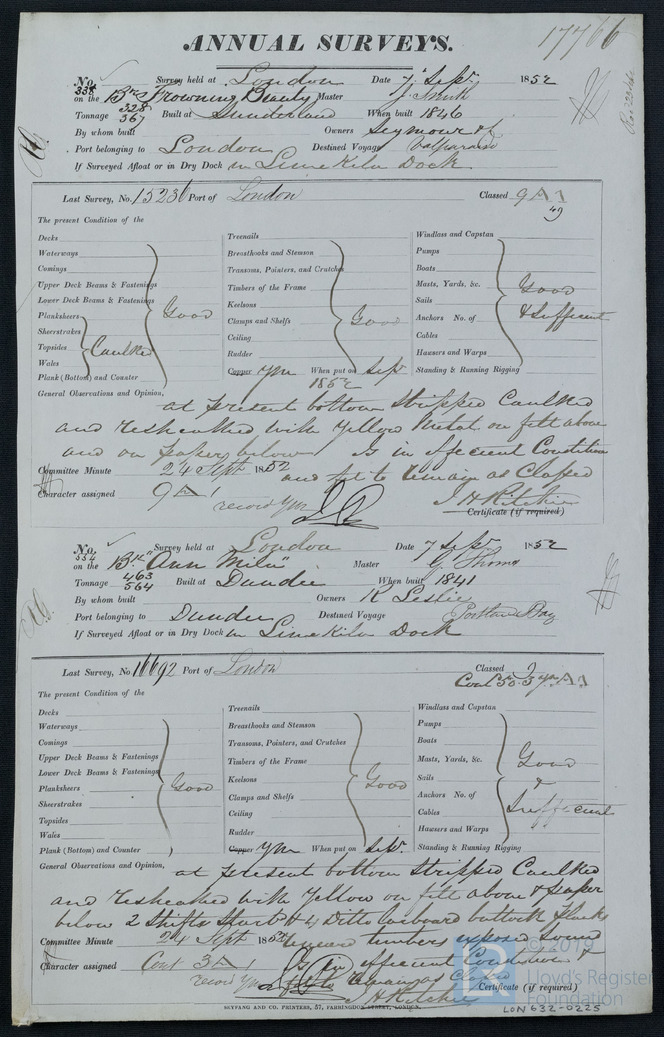 17766
ANNUAL SURVEYS.
No. 338 Survey held at London Date 7 Sept. 1852
on the Frowning Beauty Master J. Smith
Tonnage 328 367 Built at Sunderland When built 1846
By whom built Owners Seymour &
Port belonging to London Destined Voyage Valparaiso
If Surveyed Afloat or in Dry Dock in Lime Kiln Dock
Last Survey, No. 15236 Port of London Classed 9 A1
49
The present Condition of the
Decks Treenails Windlass and Capstan
Waterways Breasthooks and Stemson Pumps
Comings Transoms, Pointers, and Crutches Boats
Upper Deck Beams & Fastenings Timbers of the Frame Masts, Yards, &c. Good
Lower Deck Beams & Fastenings Good Keelsons Sails
Planksheers Clamps and Shelfs Good Anchors No. of & Sufficient
Sheerstrakes Ceiling Cables
Topsides Caulked Rudder Hawsers and Warps
Wales Copper YM When put on Sept Standing & Running Rigging
Plank (Bottom) and Counter 1852
General Observations and Opinion, at present bottom stripped Caulked
and resheathed with Yellow Metal on felt above
and on paper below Is in efficient Condition
and fit to remain as Classed
Committee Minute 24 Sept 1852
Character assigned 9 A1 record YM J H Ritchie
Certificate (if required)
No. 554 Survey held at London Date 7 Sept 1852
on the "Ann Milne" Master G. Thoms
Tonnage 463 564 Built at Dundee When built 1841
By whom built Owners R Leslie
Port belonging to Dundee Destined Voyage Portland Bay
If Surveyed Afloat or in Dry Dock in Lime Kiln Dock
Last Survey, No 16692 Port of London Classed
Cont 50. 3 yrs A1
The present Condition of the
Decks Treenails Windlass and Capstan
Waterways Breasthooks and Stemson Pumps
Comings Transoms, Pointers, and Crutches Boats
Upper Deck Beams & Fastenings Timbers of the Frame Masts, Yards, &c. Good
Lower Deck Beams & Fastenings Keelsons Good Sails &
Planksheers Good Clamps and Shelfs Anchors No. of Sufficient
Sheerstrakes Ceiling Cables
Topsides Rudder Hawsers and Warps
Wales Copper YM When put on Sept. Standing & Running Rigging
Plank (Bottom) and Counter
General Observations and Opinion, at present bottom stripped Caulked
and resheathed with Yellow on felt above & paper
below 2 Shifts Starbd & 4 Ditto Larboard buttock planks
Committee Minute 24 Sept 1852 timbers exposed sound
Character assigned Cont 3 A1 Is in efficient Condition &
record YM remain as Classed
J H Ritchie Certificate (if required)
SEYFANG AND CO. PRINTERS, 57, FARRINGDON STREET, LONDON.
© 2019
Lloyd's Register
Foundation
LON 632-0225